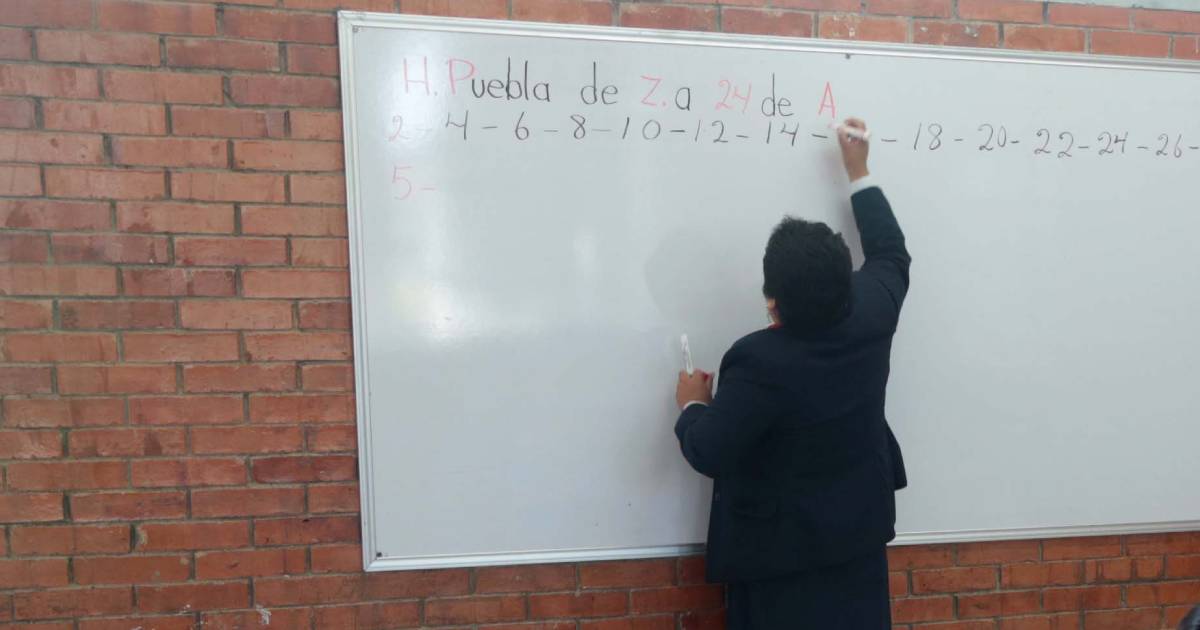 H. Puebla de Z. a 24 de A
2 - 4 - 6 - 8 - 10 - 12 - 14 - - 18 - 20 - 22 - 24 - 26 -
5 -